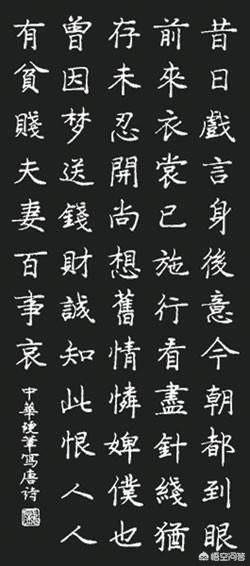 昔日戲言身後意今朝都到眼
前來衣裳已施行看盡針綫猶
存未忍開尚想舊情憐婢僕也
曾因梦送錢財誠知此恨人人
有貧賤夫妻百事哀
中華硬筆寫唐诗
悟空问答